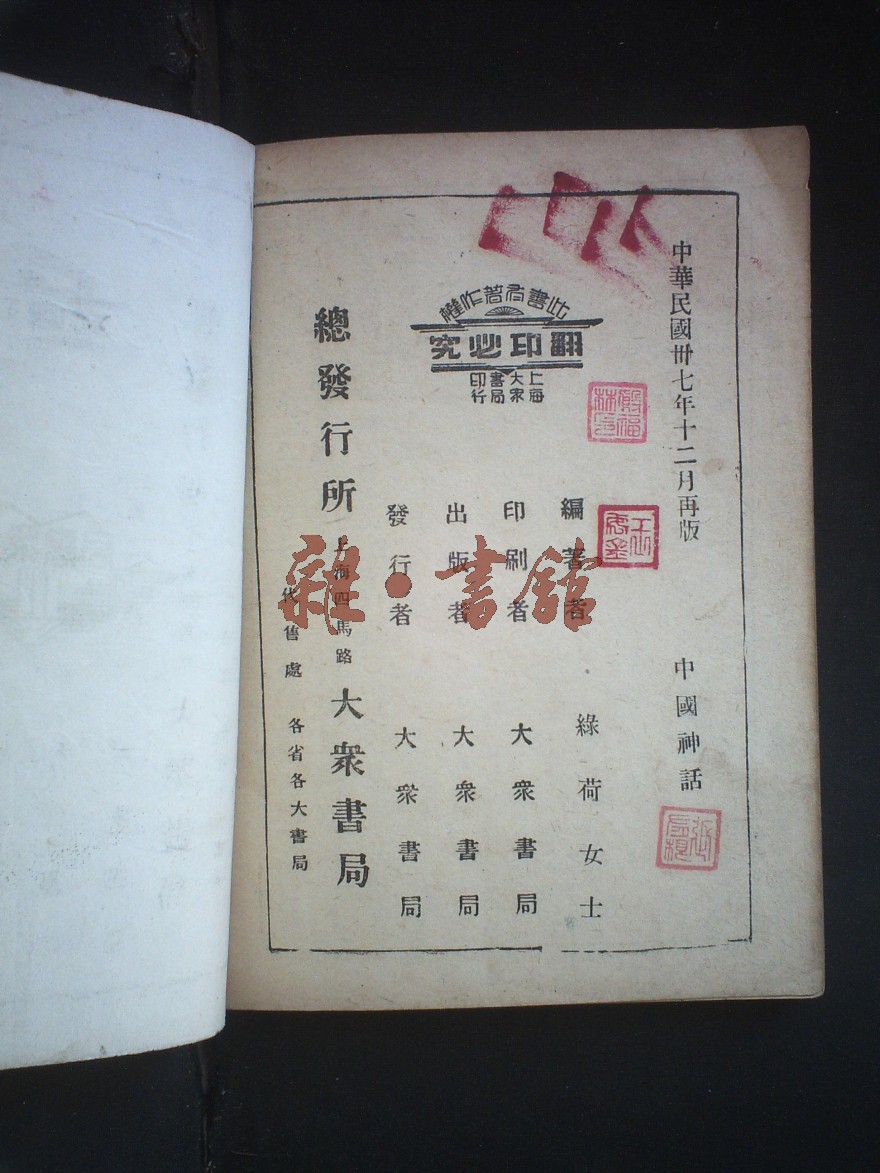 中華民國卅七年十二月再版
中國神話
此書有著作權
翻印必究
上海大眾書局印行
編著者 綠荷女士
印刷者 大眾書局
出版者 大眾書局
發行者 大眾書局
總發行所 上海四馬路 大眾書局
代售處 各省各大書局
雜·書館
殷福林印